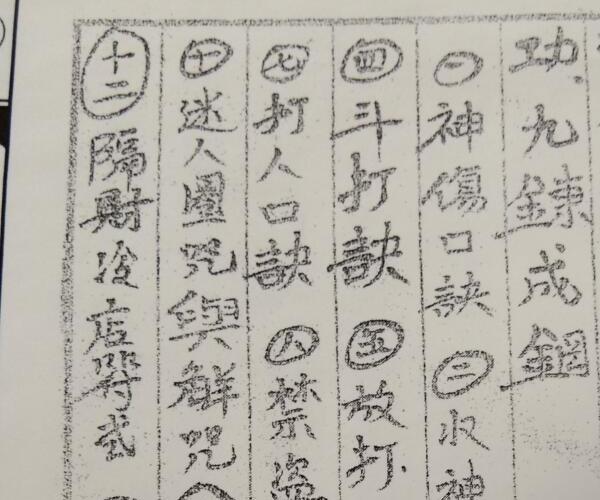 功、九鍊成鋼
㊀神傷口訣 ㊁收神
㊃斗打訣 ㊄放打
㊆打人口訣 ㊇禁盗
㊉迷人圈咒與解咒
十二隔財